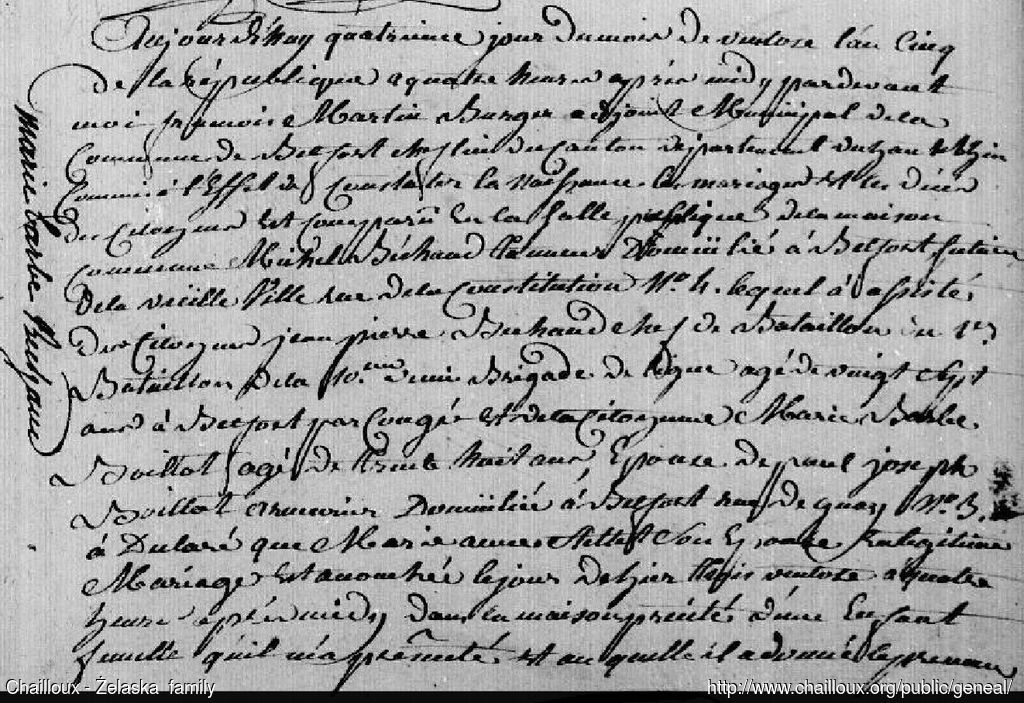 Aujourd'huy quatrieme jour du mois de ventose l'an Cinq
de la république a quatre heures après midy pardevant
moi Martin Burger adjoint Municipal de la
Commune de Belfort chef lieu du Canton département du haut Rhin
Commis à l'Effet de Constater la Naissance les mariages et les décès
des Citoyens Est Comparu En la salle publique de la maison
commune Michel Béchaud Domicilié à Belfort
de la vieille Ville rue de la Constitution N.o 4. lequel à assisté
des Citoyens jean pierre Béchaud chef de Bataillon du 1er
Bataillon de la 10.eme demi Brigade de ligne agé de vingt Sept
ans à Belfort par Congée Et de la Citoyenne Marie Barbe
Boillot agé de trente huit ans, Epouse de paul joseph
Boillot Domicilié à Belfort rue de quay N.o 3.
à Declaré que Marie anne son Epouse En legitime
Mariage Est accouchée le jour de hier trois ventose a quatre
heure après midy dans sa maison d'une Enfant
femelle qu'il m'a présenté et au quelle il a donné le prenom
marie barbe Bechaud
Chailloux - Żelaska family
http://www.chailloux.org/public/geneal/